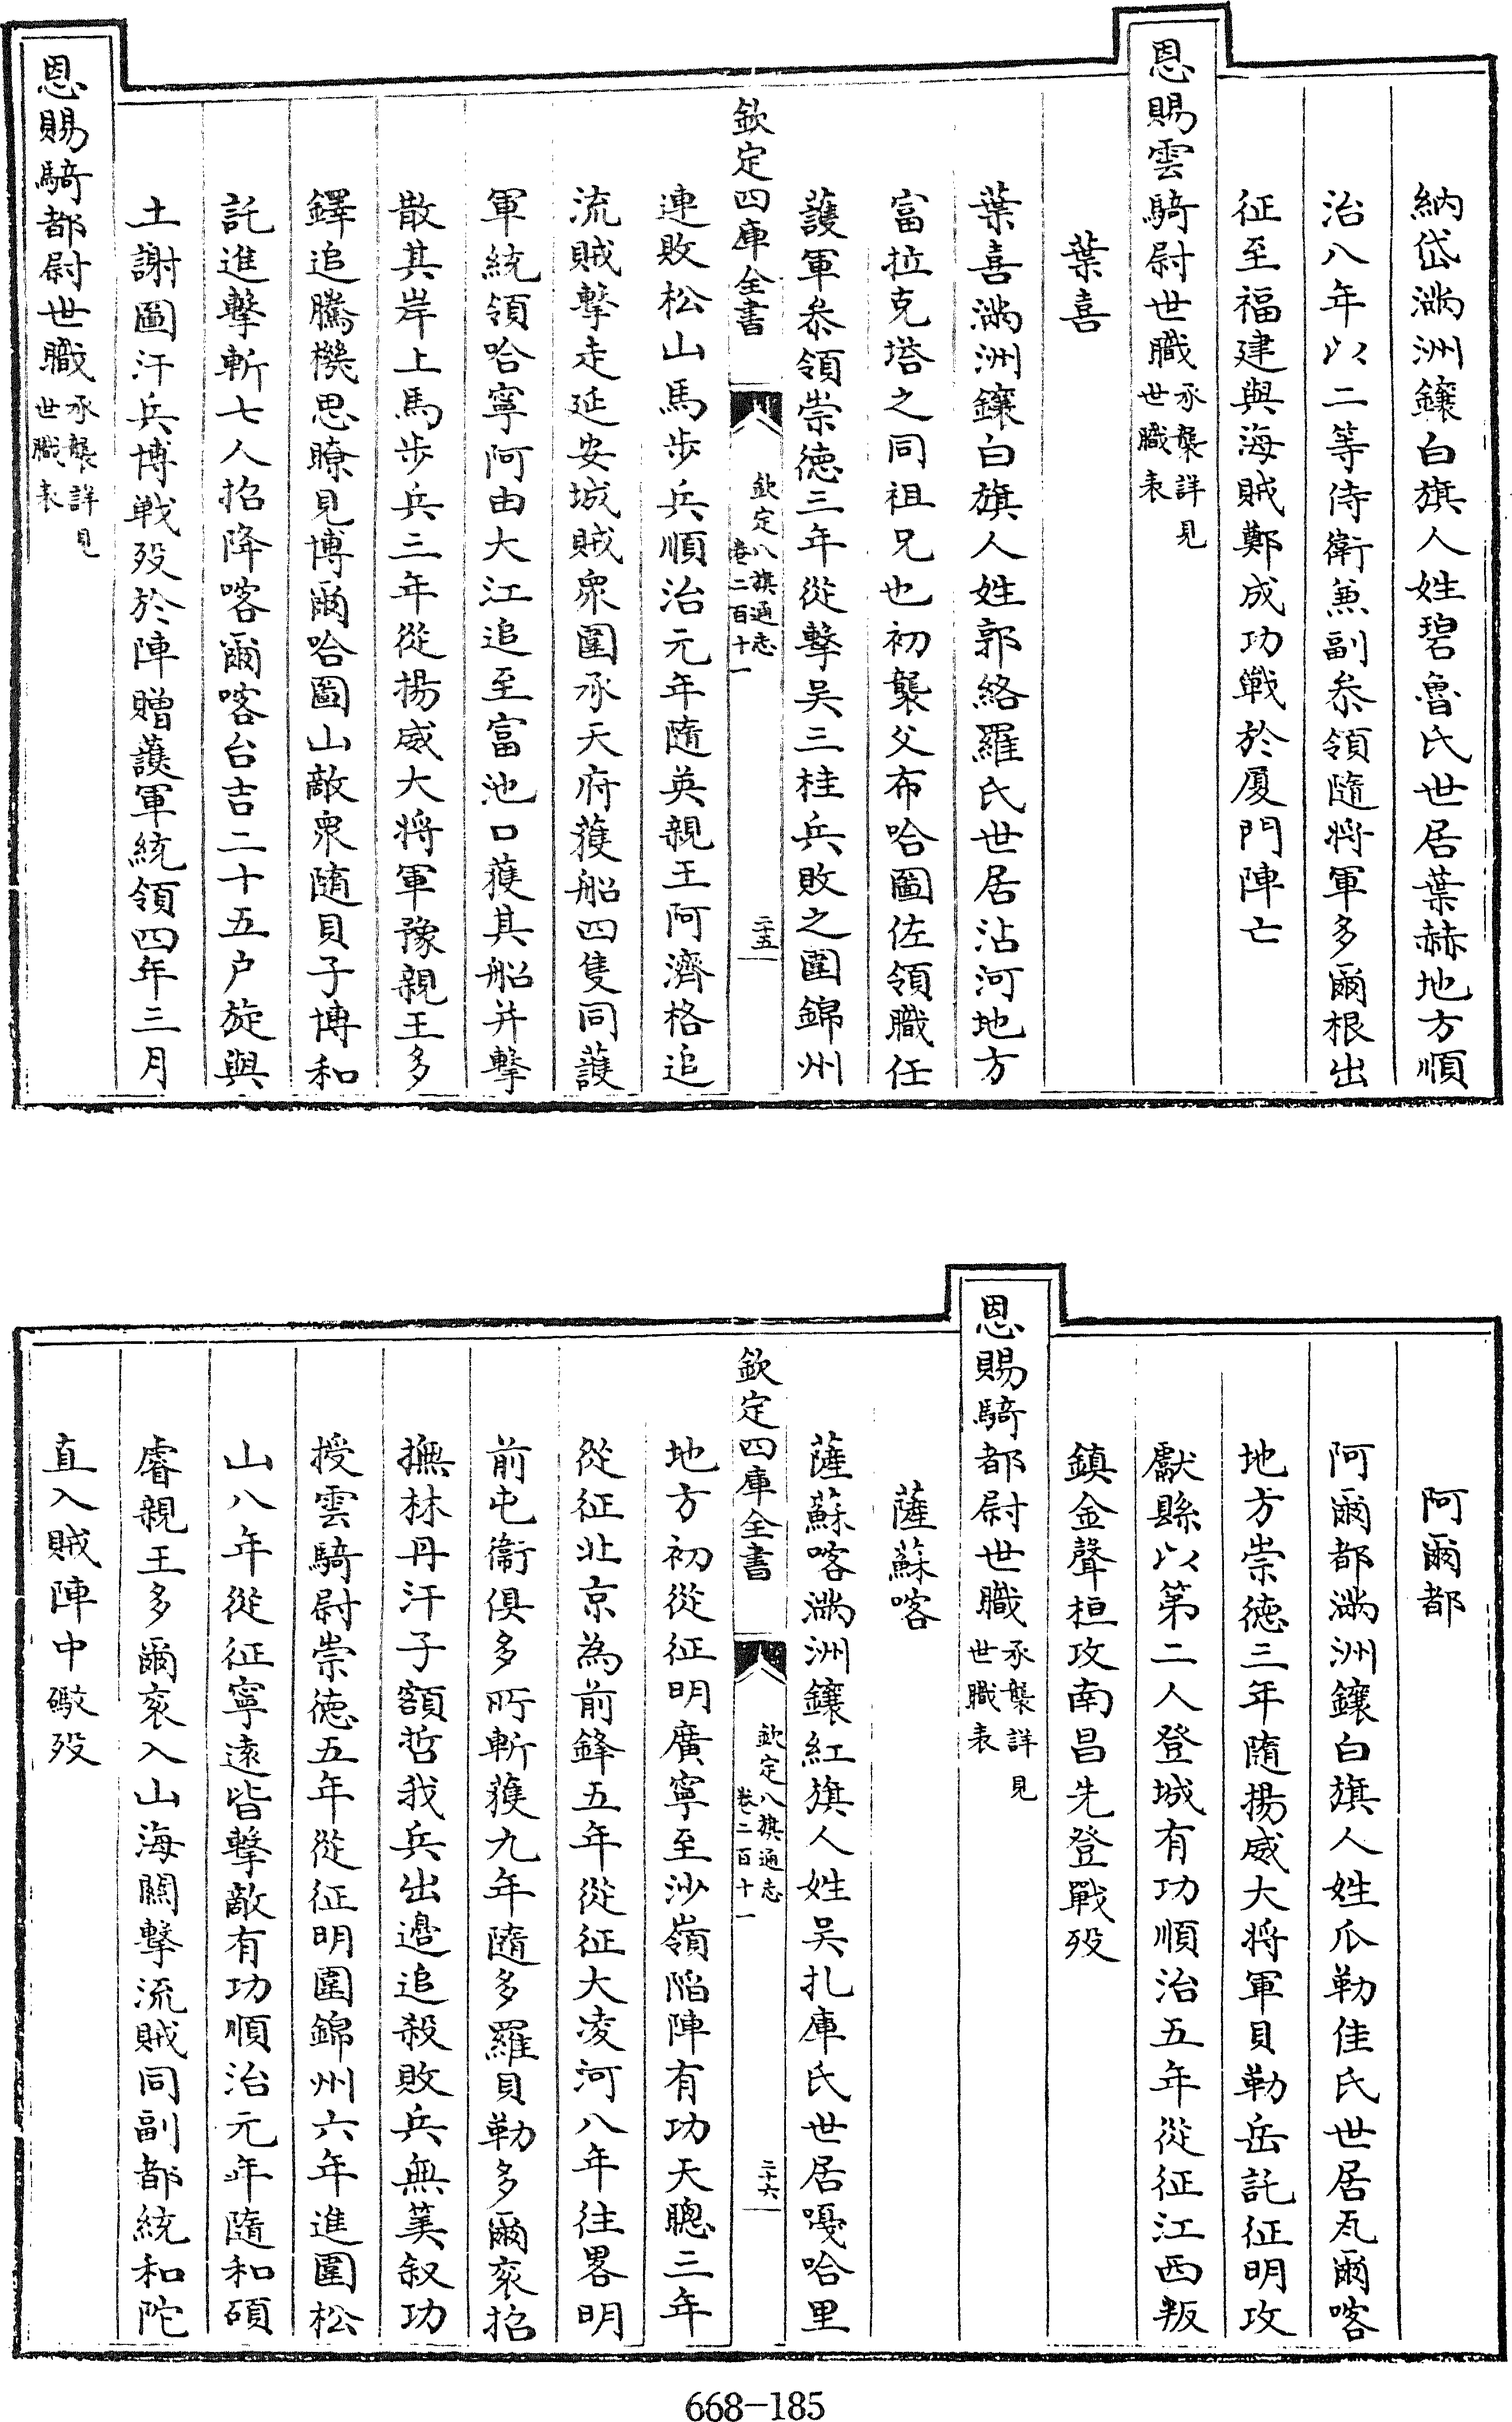 納岱滿洲鑲白旗人姓碧魯氏世居葉赫地方順
治八年以二等侍衛兼副叅領隨將軍多爾根出
征至福建與海賊鄭成功戰於厦門陣亡
恩賜雲騎尉世職承襲詳見世職表
葉喜
葉喜滿洲鑲白旗人姓郭絡羅氏世居沾河地方
富拉克塔之同祖兄也初襲父布哈圖佐領職任
護軍叅領崇德三年從擊吳三桂兵敗之圍錦州
欽定四庫全書
欽定八旗通志
卷二百十一
二十五
連敗松山馬步兵順治元年隨英親王阿濟格追
流賊擊走延安城賊衆圍承天府獲船四隻同護
軍統領哈寧阿由大江追至富池口獲其船并擊
散其岸上馬步兵三年從揚威大將軍豫親王多
鐸追騰機思瞭見博爾哈圖山敵衆隨貝子博和
託進擊斬七人招降喀爾喀台吉二十五户旋與
土謝圖汗兵博戰歿於陣贈護軍統領四年三月
恩賜騎都尉世職承襲詳見世職表
阿爾都
阿爾都滿洲鑲白旗人姓瓜勒佳氏世居瓦爾喀
地方崇德三年隨揚威大將軍貝勒岳託征明攻
獻縣以第二人登城有功順治五年從征江西叛
鎮金聲桓攻南昌先登戰歿
恩賜騎都尉世職承襲詳見世職表
薩蘇喀
薩蘇喀滿洲鑲紅旗人姓吳扎庫氏世居嘎哈里
欽定四庫全書
欽定八旗通志
卷二百十一
二十六
地方初從征明廣寧至沙嶺陷陣有功天聰三年
從征北京為前鋒五年從征大凌河八年往畧明
前屯衞俱多所斬獲九年隨多羅貝勒多爾衮招
撫林丹汗子額哲我兵出邊追殺敗兵無筭叙功
授雲騎尉崇德五年從征明圍錦州六年進圍松
山八年從征寧遠皆擊敵有功順治元年隨和碩
睿親王多爾衮入山海關擊流賊同副都統和陀
直入賊陣中礮歿
668-185